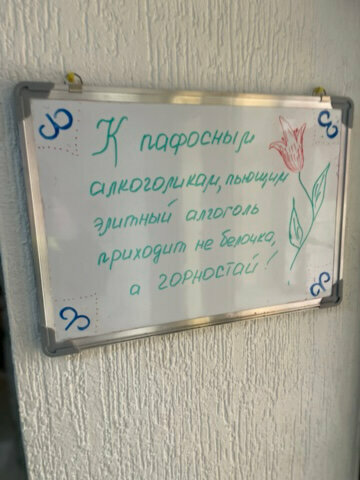 К пафосным
алкоголикам, пьющим
элитный алгоголь
приходит не белочка,
а горностай!